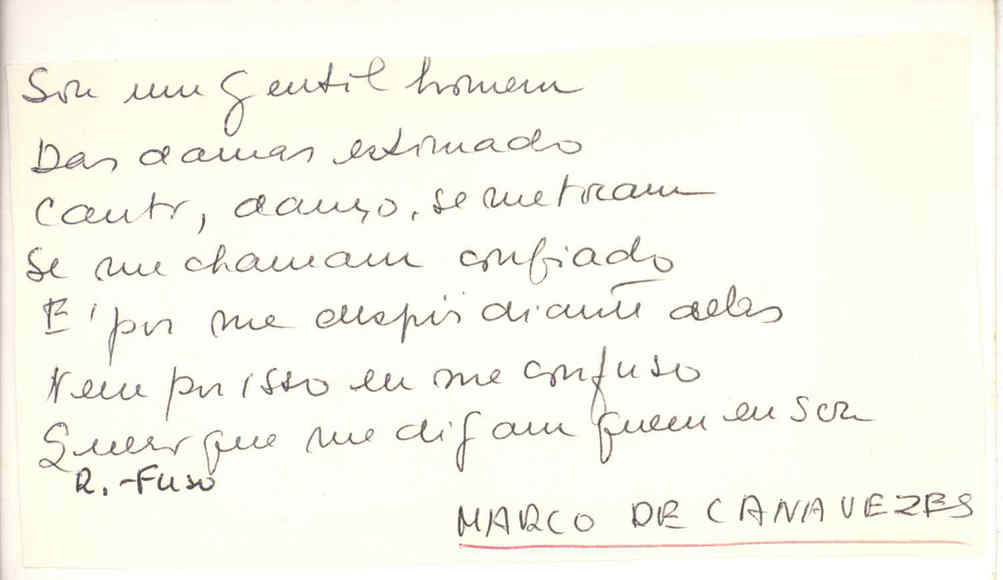 Sou um Gentil homem
Das damas estimado
Canto, danço, se me tocam
Se me chamam confiado
É por me despir diante delas
Nem por isso eu me confuso
Quero que me digam quem eu sou
R. - Fuso
MARCO DE CANAVEZES